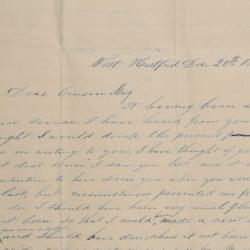 West Hartford Dec 20th 1
Dear Cousin Mary
It having been a
me since I have heard from you
ught I would devote the present
in writing to you, I have thought of yo
t deal since I saw you last and it
ntention to have seen you when you w
last, but circumstances prevented me f
so. I should have been very much plea
it been so that I could made a visi
should have done had it not been